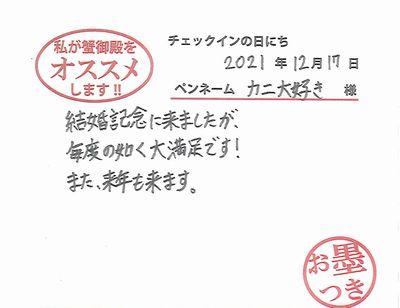 私が蟹御殿を
オススメ
します!!
チェックインの日にち
2021年12月17日
ペンネーム カニ大好き 様
結婚記念に来ましたが、
毎度の如く大満足です!
また、来年も来ます。
お墨
つき